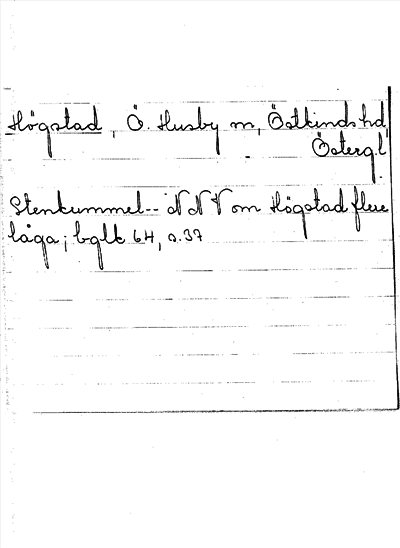 Högstad, Ö. Husby sn, Östkinds hd,
Östergl.
Stenkummel-- N N V om Högstad flere
låga; bglk 64, s.37